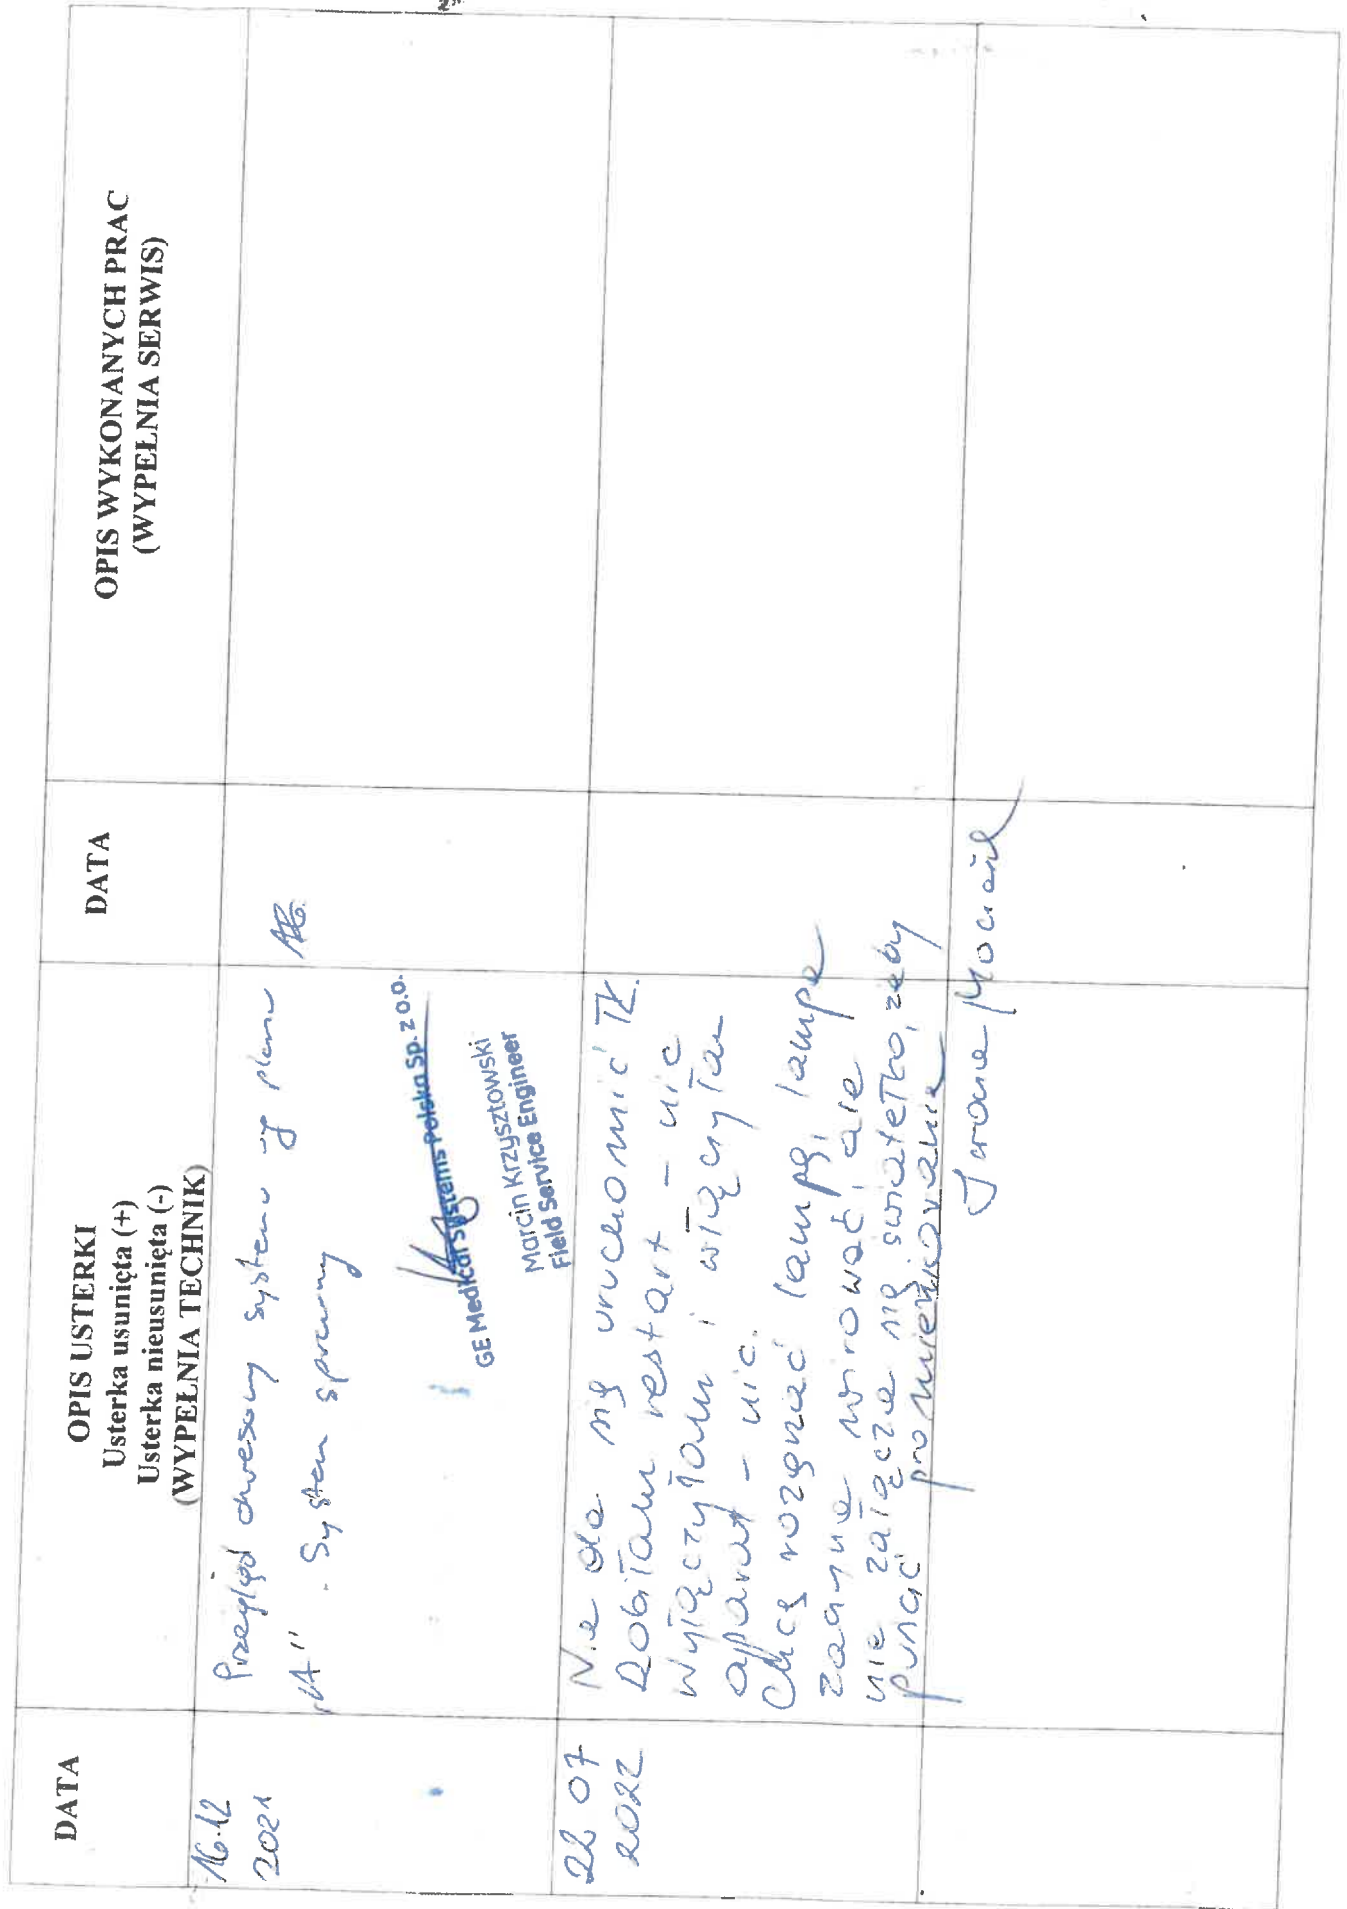 DATA
OPIS USTERKI
Usterka usunięta (+)
Usterka nieusunięta (-)
(WYPEŁNIA TECHNIK)
DATA
OPIS WYKONANYCH PRAC
(WYPEŁNIA SERWIS)
16.12
2021
Przegląd okresowy systemu wg planu
"A". System sprawny
GE Medical Systems Polska Sp. z o.o.
Marcin Krzysztowski
Field Service Engineer
22.07
2022
Nie da się uruchomić TK.
Robiłam restart - nic
wyłączyłam i włączyłam
aparat - nic.
Chcę rozgrzać lampę, lampa
zaczyna wirować, ale
nie załącza się światełko, żeby
puścić promieniowanie
Iwona